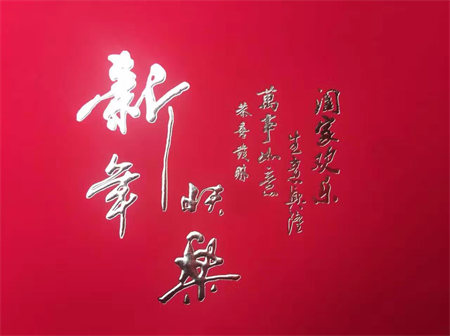 新年快樂
阖家欢乐
生意兴隆
萬事如意
恭喜發财